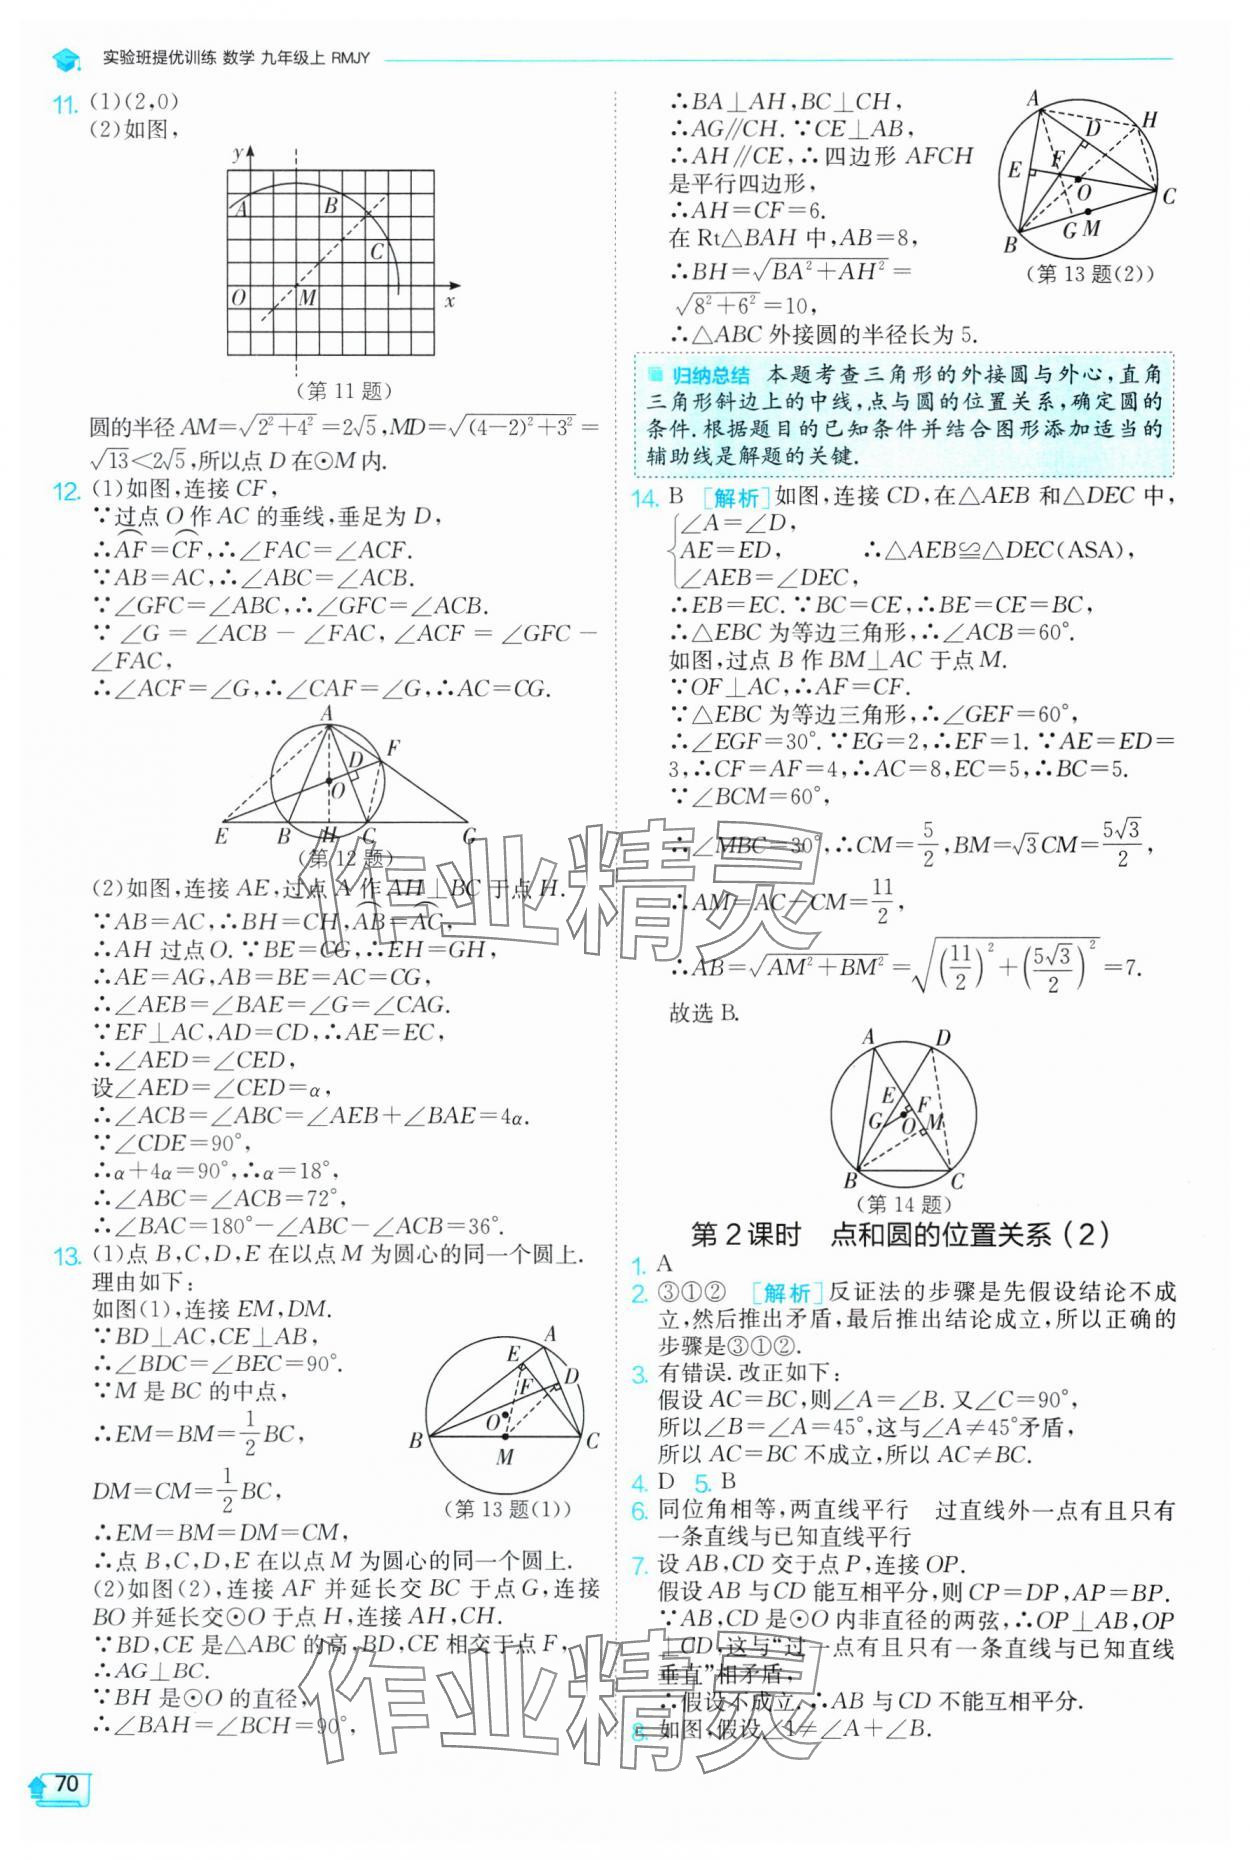 实验班提优训练 数学 九年级上 RMJY
11. (1)(2,0)
(2)如图,
y
A
B
C
O
M
x
(第 11 题)
圆的半径 AM=√(2²+4²)=2√5,MD=√((4-2)²+3²)=
√13<2√5,所以点 D 在⊙M 内.
12. (1)如图,连接 CF,
∵过点 O 作 AC 的垂线,垂足为 D,
∴⌒AF=⌒CF,∴∠FAC=∠ACF.
∵AB=AC,∴∠ABC=∠ACB.
∵∠GFC=∠ABC,∴∠GFC=∠ACB.
∵∠G=∠ACB-∠FAC,∠ACF=∠GFC-
∠FAC,
∴∠ACF=∠G,∴∠CAF=∠G,∴AC=CG.
A
F
D
O
E B H C G
(第 12 题)
(2)如图,连接 AE,过点 A 作 AH⊥BC 于点 H.
∵AB=AC,∴BH=CH,⌒AB=⌒AC,
∴AH 过点O.∵BE=CG,∴EH=GH,
∴AE=AG,AB=BE=AC=CG,
∴∠AEB=∠BAE=∠G=∠CAG.
∵EF⊥AC,AD=CD,∴AE=EC,
∴∠AED=∠CED,
设∠AED=∠CED=α,
∴∠ACB=∠ABC=∠AEB+∠BAE=4α.
∵∠CDE=90°,
∴α+4α=90°,∴α=18°,
∴∠ABC=∠ACB=72°,
∴∠BAC=180°-∠ABC-∠ACB=36°.
13. (1)点 B,C,D,E 在以点 M 为圆心的同一个圆上.
理由如下:
如图(1),连接 EM,DM.
∵BD⊥AC,CE⊥AB,
∴∠BDC=∠BEC=90°.
∵M 是 BC 的中点,
∴EM=BM=1/2BC,
DM=CM=1/2BC,
A
E
F
D
O
B
M
C
(第 13 题(1))
∴EM=BM=DM=CM,
∴点 B,C,D,E 在以点 M 为圆心的同一个圆上.
(2)如图(2),连接 AF 并延长交 BC 于点 G,连接
BO 并延长交⊙O 于点 H,连接 AH,CH.
∵BD,CE 是△ABC 的高,BD,CE 相交于点 F,
∴AG⊥BC.
∵BH 是⊙O 的直径,
∴∠BAH=∠BCH=90°,
∴BA⊥AH,BC⊥CH,
∴AG∥CH.∵CE⊥AB,
∴AH∥CE,∴四边形 AFCH
是平行四边形,
∴AH=CF=6.
在 Rt△BAH 中,AB=8,
∴BH=√(BA²+AH²)=
√(8²+6²)=10,
∴△ABC 外接圆的半径长为 5.
A
D
H
E
F
O
C
G M
B
(第 13 题(2))
归纳总结 本题考查三角形的外接圆与外心,直角
三角形斜边上的中线,点与圆的位置关系,确定圆的
条件.根据题目的已知条件并结合图形添加适当的
辅助线是解题的关键.
14. B [解析]如图,连接 CD,在△AEB 和△DEC 中,
{∠A=∠D,
AE=ED,
∠AEB=∠DEC,
∴△AEB≌△DEC(ASA),
∴EB=EC.∵BC=CE,∴BE=CE=BC,
∴△EBC 为等边三角形,∴∠ACB=60°.
如图,过点 B 作 BM⊥AC 于点 M.
∵OF⊥AC,∴AF=CF.
∵△EBC 为等边三角形,∴∠GEF=60°,
∴∠EGF=30°.∵EG=2,∴EF=1.∵AE=ED=
3,∴CF=AF=4,∴AC=8,EC=5,∴BC=5.
∵∠BCM=60°,
∴∠MBC=30°,∴CM=5/2,BM=√3CM=5√3/2,
∴AM=AC-CM=11/2,
∴AB=√(AM²+BM²)=√((11/2)²+(5√3/2)²)=7.
故选 B.
A D
E
F
G
O
M
B
C
(第 14 题)
第 2 课时 点和圆的位置关系(2)
1. A
2. ③①② [解析]反证法的步骤是先假设结论不成
立,然后推出矛盾,最后推出结论成立,所以正确的
步骤是③①②.
3. 有错误.改正如下:
假设 AC=BC,则∠A=∠B.又∠C=90°,
所以∠B=∠A=45°,这与∠A≠45°矛盾,
所以 AC=BC 不成立,所以 AC≠BC.
4. D 5. B
6. 同位角相等,两直线平行 过直线外一点有且只有
一条直线与已知直线平行
7. 设 AB,CD 交于点 P,连接 OP.
假设 AB 与 CD 能互相平分,则 CP=DP,AP=BP.
∵AB,CD 是⊙O 内非直径的两弦,∴OP⊥AB,OP
⊥CD,这与“过一点有且只有一条直线与已知直线
垂直”相矛盾,
∴假设不成立.∴AB 与 CD 不能互相平分.
8. 如图,假设∠1≠∠A+∠B.
作业精灵
作业精灵
70